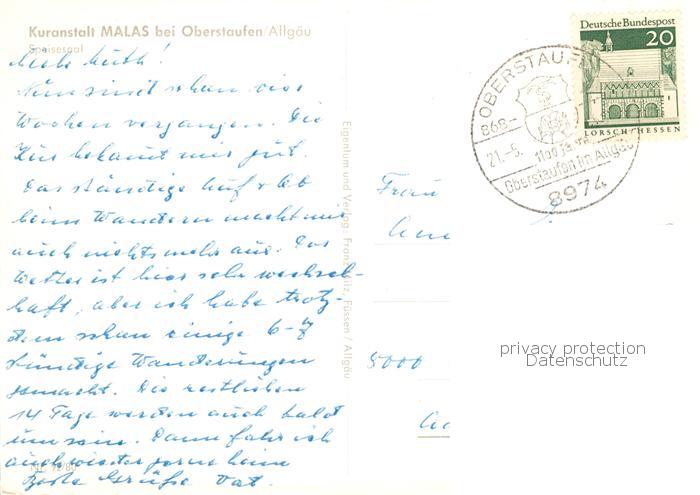 Kuranstalt MALAS bei Oberstaufen/Allgäu
Speisesaal
Liebe Ruth!
Nun sind schon vier
Wochen vergangen. Die
Kur bekommt mir gut.
Das ständige Auf + Ab
beim Wandern macht mir
auch nichts mehr aus. Das
Wetter ist hier sehr wechsel-
haft, aber ich habe trotz-
dem schon einige 6-7
stündige Wanderungen
gemacht. Die restlichen
14 Tage werden auch bald
um sein. Dann fahr ich
auch wieder gerne heim
Beste Grüße Vat.
Eigentum und Verlag: Franz Milz, Füssen / Allgäu
Frau
5000
Deutsche Bundespost
20
LORSCH/HESSEN
OBERSTAUFEN
868-
21.-5.
1100 Jahre
Oberstaufen im Allgäu
8974
privacy protection
Datenschutz